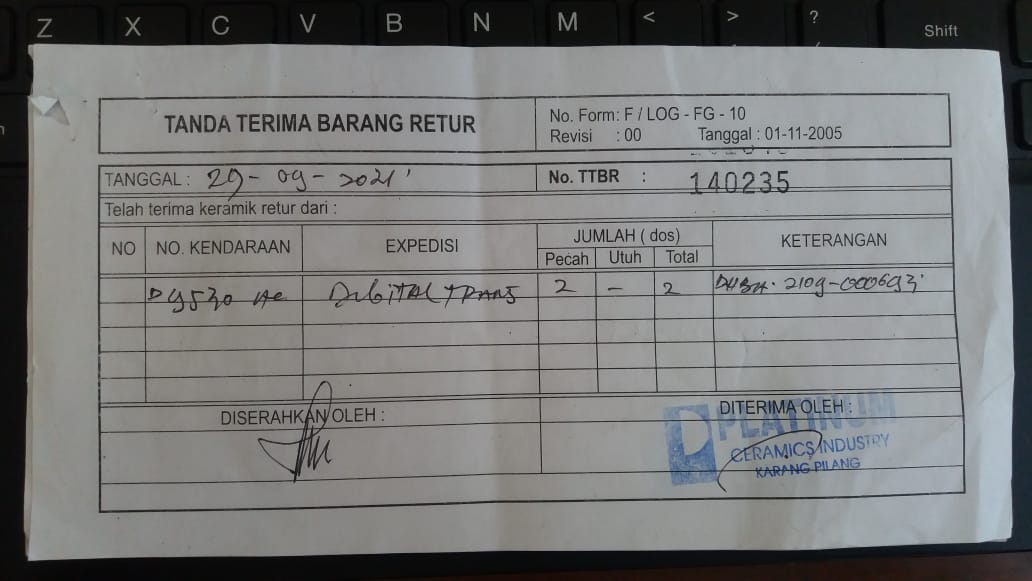 Z X C V B N M < > ?
Shift
TANDA TERIMA BARANG RETUR
No. Form: F / LOG - FG - 10
Revisi : 00 Tanggal : 01-11-2005
TANGGAL : 29-09-2021
No. TTBR : 140235
Telah terima keramik retur dari :
NO NO. KENDARAAN EXPEDISI JUMLAH ( dos) KETERANGAN
Pecah Utuh Total
DIGITAL TRANS 2 - 2 2109-000693
DISERAHKAN OLEH : DITERIMA OLEH :
PLATINUM
CERAMICS INDUSTRY
KARANG PILANG